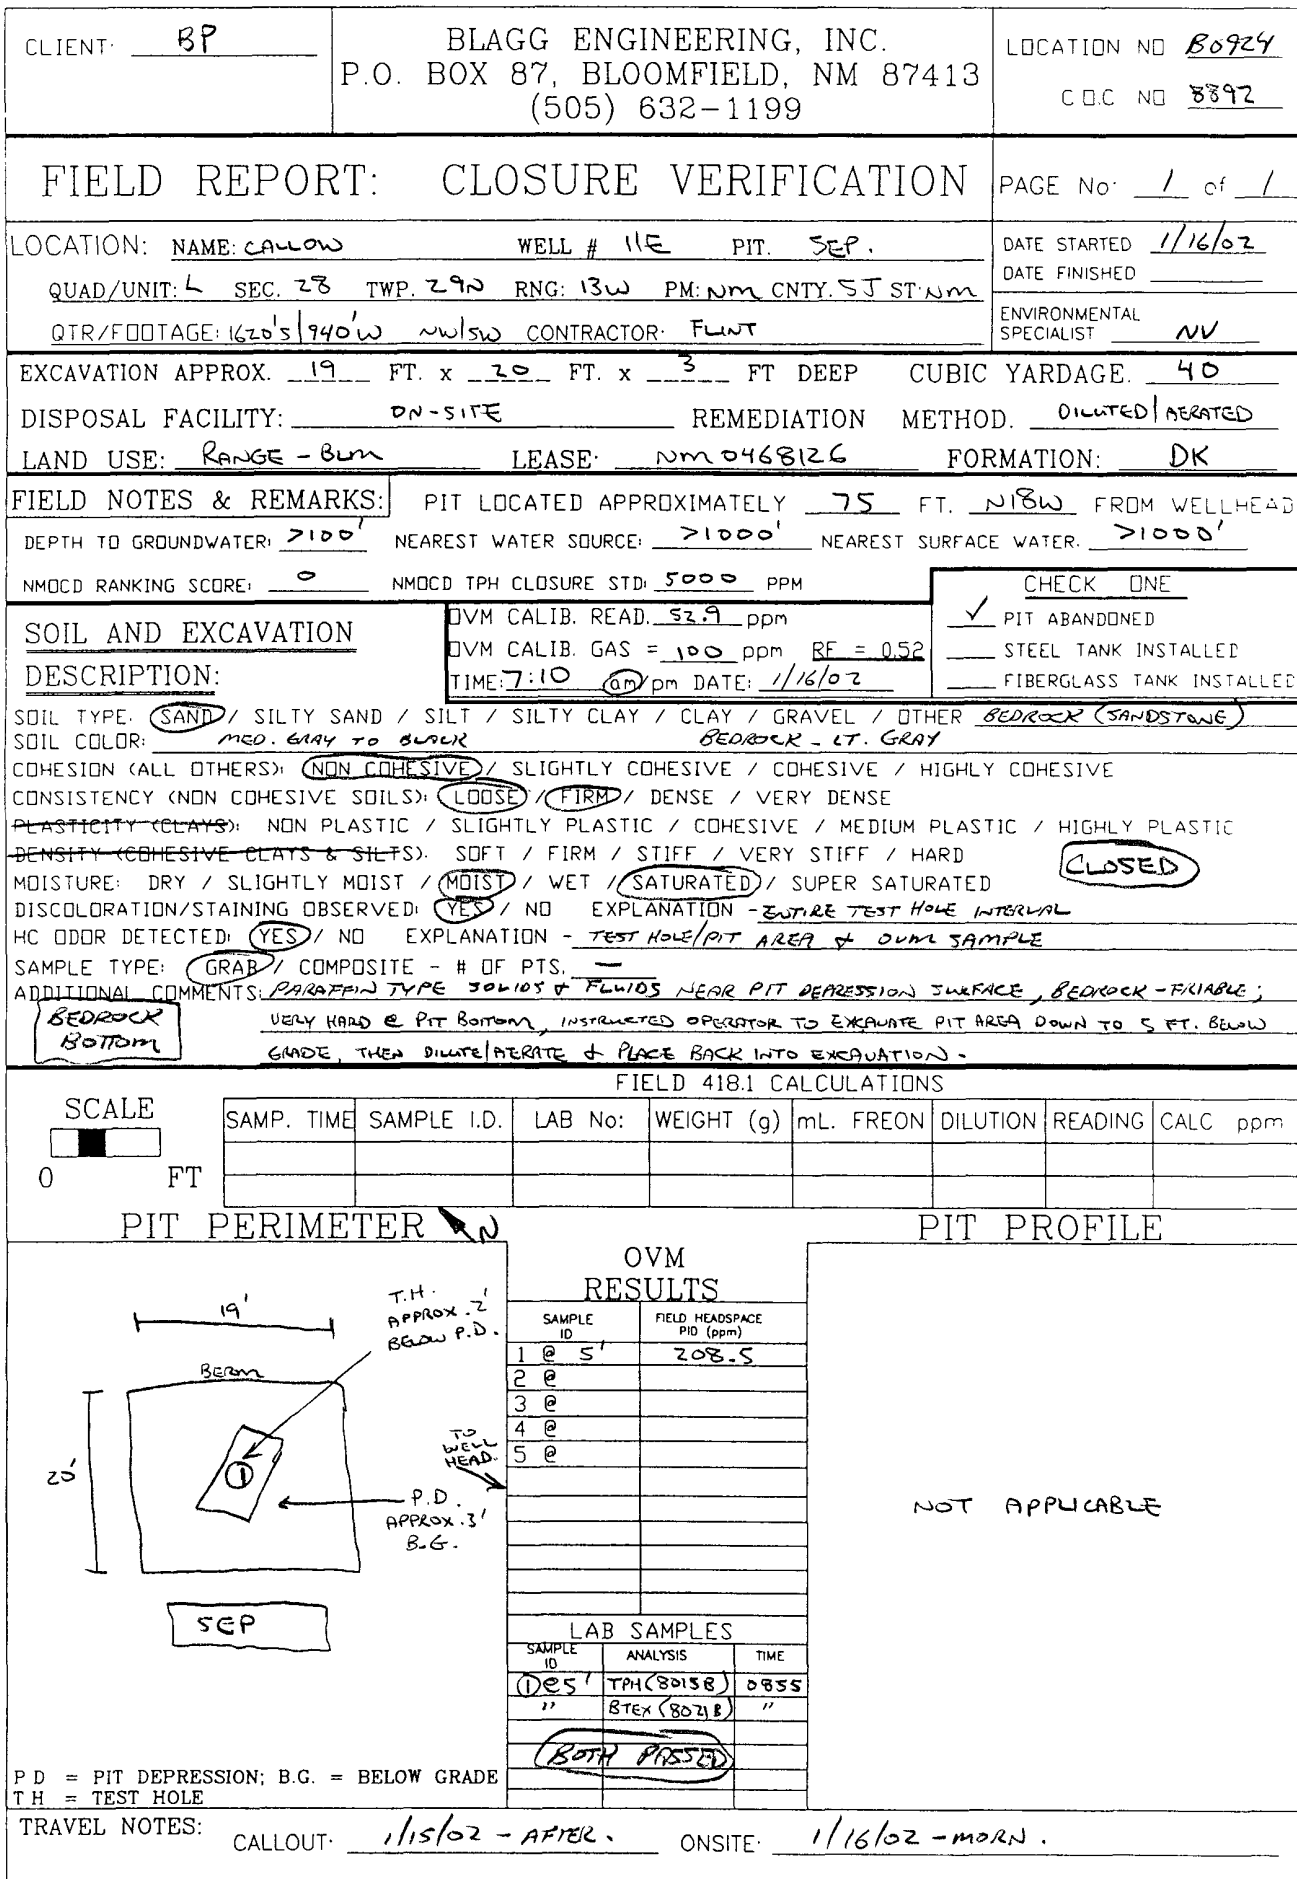 CLIENT: BP
BLAGG ENGINEERING, INC.
P.O. BOX 87, BLOOMFIELD, NM 87413
(505) 632-1199
LOCATION NO B0924
C.O.C NO 8892
FIELD REPORT: CLOSURE VERIFICATION
PAGE No: 1 of 1
LOCATION: NAME: CALLOW WELL # 11E PIT: SEP.
QUAD/UNIT: L SEC. 28 TWP. 29N RNG: 13W PM: NM CNTY. SJ ST: NM
QTR/FOOTAGE: 1620'S/940'W NW/SW CONTRACTOR: FLINT
DATE STARTED 1/16/02
DATE FINISHED
ENVIRONMENTAL
SPECIALIST NV
EXCAVATION APPROX. 19 FT. x 20 FT. x 3 FT DEEP CUBIC YARDAGE. 40
DISPOSAL FACILITY: ON-SITE REMEDIATION METHOD. DILUTED/AERATED
LAND USE: RANGE - BLM LEASE: NM 0468126 FORMATION: DK
FIELD NOTES & REMARKS: PIT LOCATED APPROXIMATELY 75 FT. N18W FROM WELLHEAD
DEPTH TO GROUNDWATER: >100' NEAREST WATER SOURCE: >1000' NEAREST SURFACE WATER: >1000'
NMOCD RANKING SCORE: 0 NMOCD TPH CLOSURE STD: 5000 PPM
CHECK ONE
✓ PIT ABANDONED
STEEL TANK INSTALLED
FIBERGLASS TANK INSTALLED
SOIL AND EXCAVATION
DESCRIPTION:
OVM CALIB. READ. 52.9 ppm
OVM CALIB. GAS = 100 ppm RF = 0.52
TIME: 7:10 am/pm DATE: 1/16/02
SOIL TYPE: SAND / SILTY SAND / SILT / SILTY CLAY / CLAY / GRAVEL / OTHER BEDROCK (SANDSTONE)
SOIL COLOR: MED. GRAY TO BLACK BEDROCK - LT. GRAY
COHESION (ALL OTHERS): NON COHESIVE / SLIGHTLY COHESIVE / COHESIVE / HIGHLY COHESIVE
CONSISTENCY (NON COHESIVE SOILS): LOOSE / FIRM / DENSE / VERY DENSE
PLASTICITY (CLAYS): NON PLASTIC / SLIGHTLY PLASTIC / COHESIVE / MEDIUM PLASTIC / HIGHLY PLASTIC
DENSITY (COHESIVE CLAYS & SILTS): SOFT / FIRM / STIFF / VERY STIFF / HARD
CLOSED
MOISTURE: DRY / SLIGHTLY MOIST / MOIST / WET / SATURATED / SUPER SATURATED
DISCOLORATION/STAINING OBSERVED: YES / NO EXPLANATION - ENTIRE TEST HOLE INTERVAL
HC ODOR DETECTED: YES / NO EXPLANATION - TEST HOLE/PIT AREA & OVM SAMPLE
SAMPLE TYPE: GRAB / COMPOSITE - # OF PTS. —
ADDITIONAL COMMENTS: PARAFFIN TYPE SOLIDS & FLUIDS NEAR PIT DEPRESSION SURFACE, BEDROCK - FRIABLE;
VERY HARD @ PIT BOTTOM, INSTRUCTED OPERATOR TO EXCAVATE PIT AREA DOWN TO 5 FT. BELOW
GRADE, THEN DILUTE/AERATE & PLACE BACK INTO EXCAVATION.
BEDROCK
BOTTOM
FIELD 418.1 CALCULATIONS
SCALE
0 FT
SAMP. TIME SAMPLE I.D. LAB No: WEIGHT (g) mL. FREON DILUTION READING CALC ppm
PIT PERIMETER N
PIT PROFILE
19'
T.H.
APPROX. 2'
BELOW P.D.
BERM
20'
1
TO
WELL
HEAD.
P.D.
APPROX. 3'
B.G.
SEP
OVM
RESULTS
SAMPLE ID FIELD HEADSPACE PID (ppm)
1 @ 5' 208.5
2 @
3 @
4 @
5 @
NOT APPLICABLE
LAB SAMPLES
SAMPLE ID ANALYSIS TIME
①@5' TPH (8015B) 0855
" BTEX (8021B) "
BOTH PASSED
P D = PIT DEPRESSION; B.G. = BELOW GRADE
T H = TEST HOLE
TRAVEL NOTES: CALLOUT: 1/15/02 - AFTER. ONSITE: 1/16/02 - MORN.